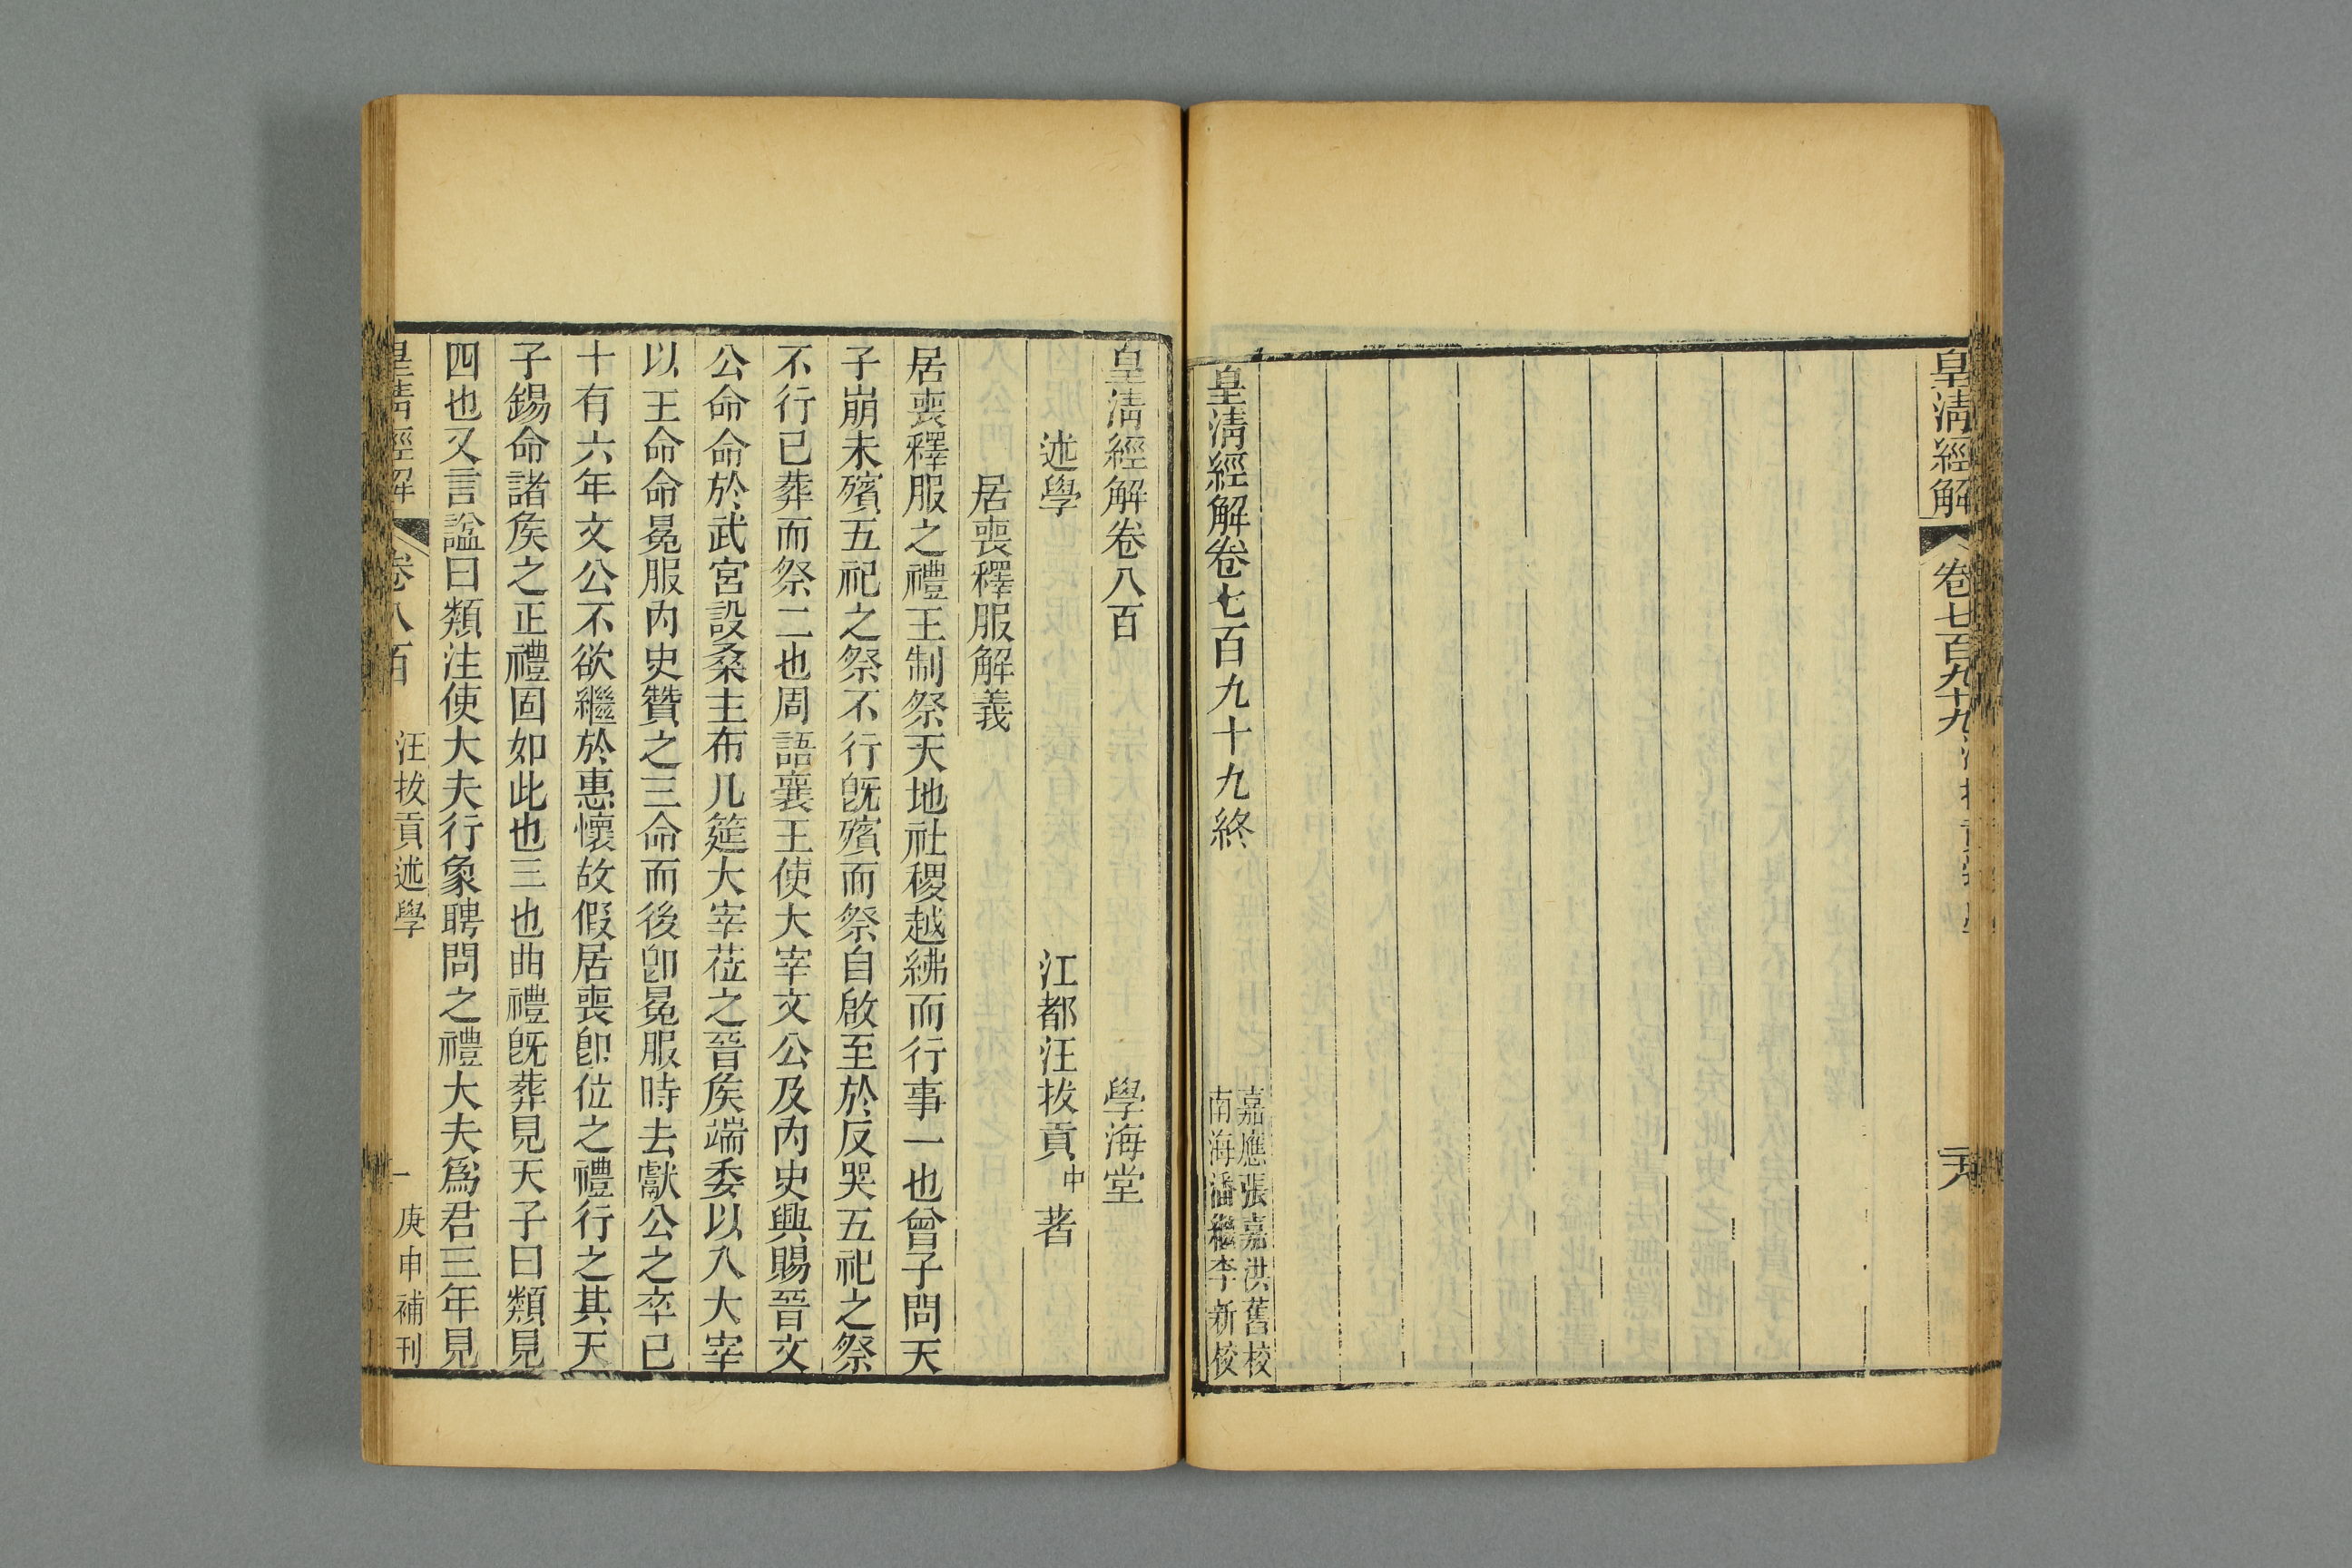 皇清經解
卷七百九十九
皇清經解卷七百九十九終
嘉應張嘉洪舊校
南海潘繼李新校
皇清經解卷八百
學海堂
述學
江都汪拔貢中著
居喪釋服解義
居喪釋服之禮王制祭天地社稷越紼而行事一也曾子問天
子崩未殯五祀之祭不行旣殯而祭自啟至於反哭五祀之祭
不行已葬而祭二也周語襄王使大宰文公及內史興賜晉文
公命命於武宮設桑主布几筵大宰莅之晉矦端委以入大宰
以王命命冕服內史贊之三命而後卽冕服時去獻公之卒已
十有六年文公不欲繼於惠懷故假居喪卽位之禮行之其天
子錫命諸矦之正禮固如此也三也曲禮旣葬見天子曰類見
四也又言諡曰類注使大夫行象聘問之禮大夫爲君三年見
皇清經解
卷八百
汪拔貢述學
一
庚申補刊